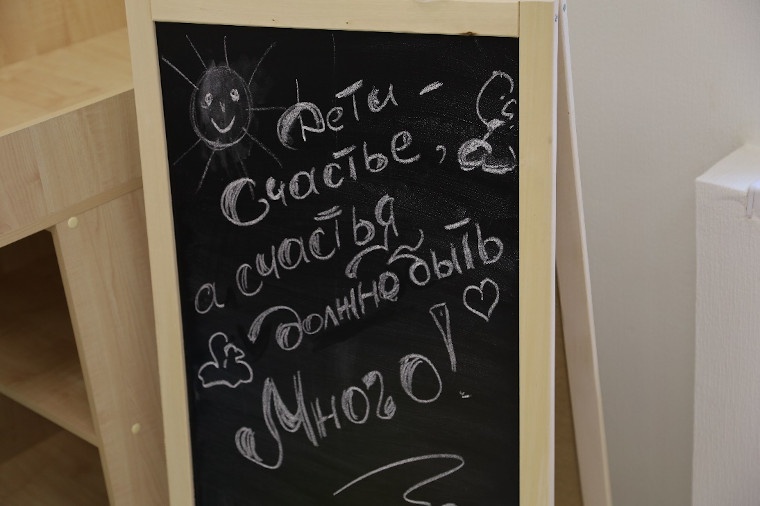 Дети -
Счастье,
а счастья
должно быть
Много!